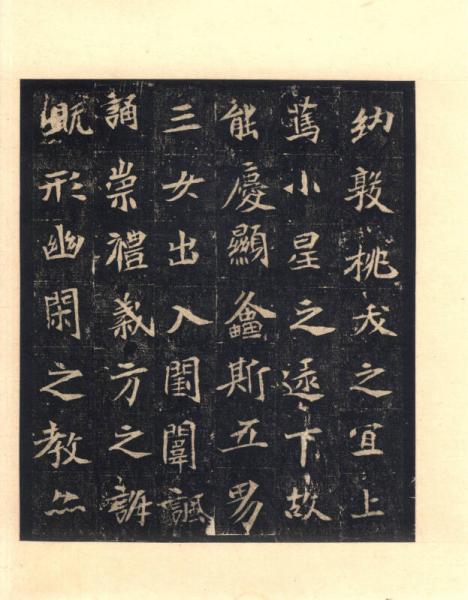 幼敦桃夭之宜上
篤小星之逮下故
能慶顯螽斯五男
三女出入閨闈諷
誦崇禮義方之訓
既形幽閑之教亦